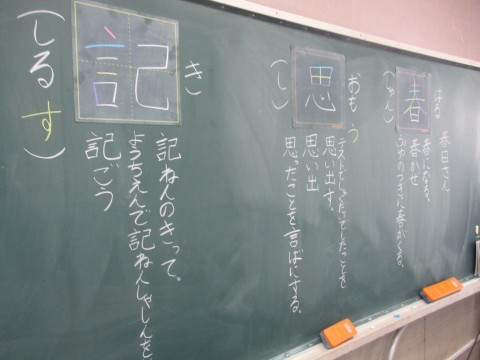 春
はる
(しゅん)
春日さん
春になる。
春かぜ
ふゆのつぎに春がくる。
思
おもう
(し)
テストでしっぱいしたことを
思い出す。
思い出
思ったことを言ばにする。
記
き
(しるす)
記ねんのきって。
ようちえんで記ねんしゃしんを
記ごう